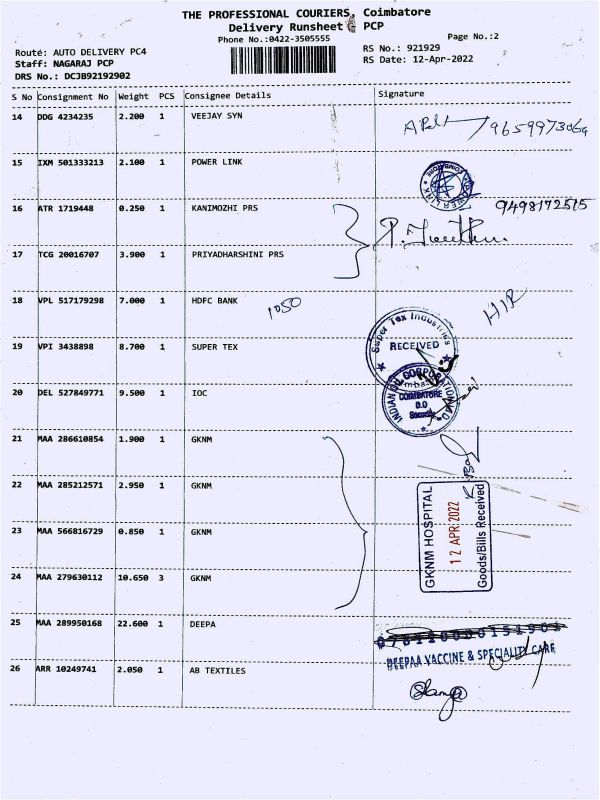 THE PROFESSIONAL COURIERS, Coimbatore
Delivery Runsheet PCP
Phone No.:0422-3505555
Page No.:2
Route: AUTO DELIVERY PC4
RS No.: 921929
Staff: NAGARAJ PCP
RS Date: 12-Apr-2022
DRS No.: DCJB92192902
S No Consignment No Weight PCS Consignee Details Signature
14 DDG 4234235 2.200 1 VEEJAY SYN
9659973069
15 IXM 501333213 2.100 1 POWER LINK
16 ATR 1719448 0.250 1 KANIMOZHI PRS
9498172515
17 TCG 20016707 3.900 1 PRIYADHARSHINI PRS
18 VPL 517179298 7.000 1 HDFC BANK 1050
19 VPI 3438898 8.700 1 SUPER TEX
Super Tex Industries
RECEIVED
20 DEL 527849771 9.500 1 IOC
INDIAN OIL CORPORATION
COIMBATORE
D.O
21 MAA 286610854 1.900 1 GKNM
22 MAA 285212571 2.950 1 GKNM
23 MAA 566816729 0.850 1 GKNM
24 MAA 279630112 10.650 3 GKNM
GKNM HOSPITAL
12 APR 2022
Goods/Bills Received
25 MAA 289950168 22.600 1 DEEPA
DEEPAA VACCINE & SPECIALITY CARE
26 ARR 10249741 2.050 1 AB TEXTILES